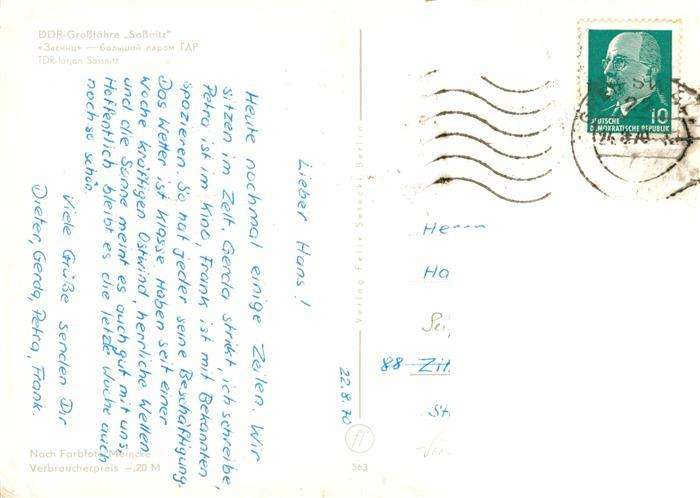 DDR-Großfähre „Saßnitz"
«Засниц» — большой паром ГДР
TDR-tarjan Sassnitz
Lieber Hans!
Heute nochmal einige Zeilen. Wir
sitzen im Zelt. Gerda strikt, ich schreibe,
Petra ist im Kino, Frank ist mit Bekannten
spazieren. So hat jeder seine Beschäftigung.
Das Wetter ist klasse Haben seit einer
Woche kräftigen Ostwind, herrliche Wellen
und die Sonne meint es auch gut mit uns,
Hoffentlich bleibt es die letzte Woche auch
noch so schön.
Viele Grüße senden Dir
Dieter, Gerda, Petra, Frank.
22.8.70
Nach Farbfoto: Meincke
Verbraucherpreis —,20 M
563
DEUTSCHE
DEMOKRATISCHE REPUBLIK
10
Herrn
Ha
88 Zit
St